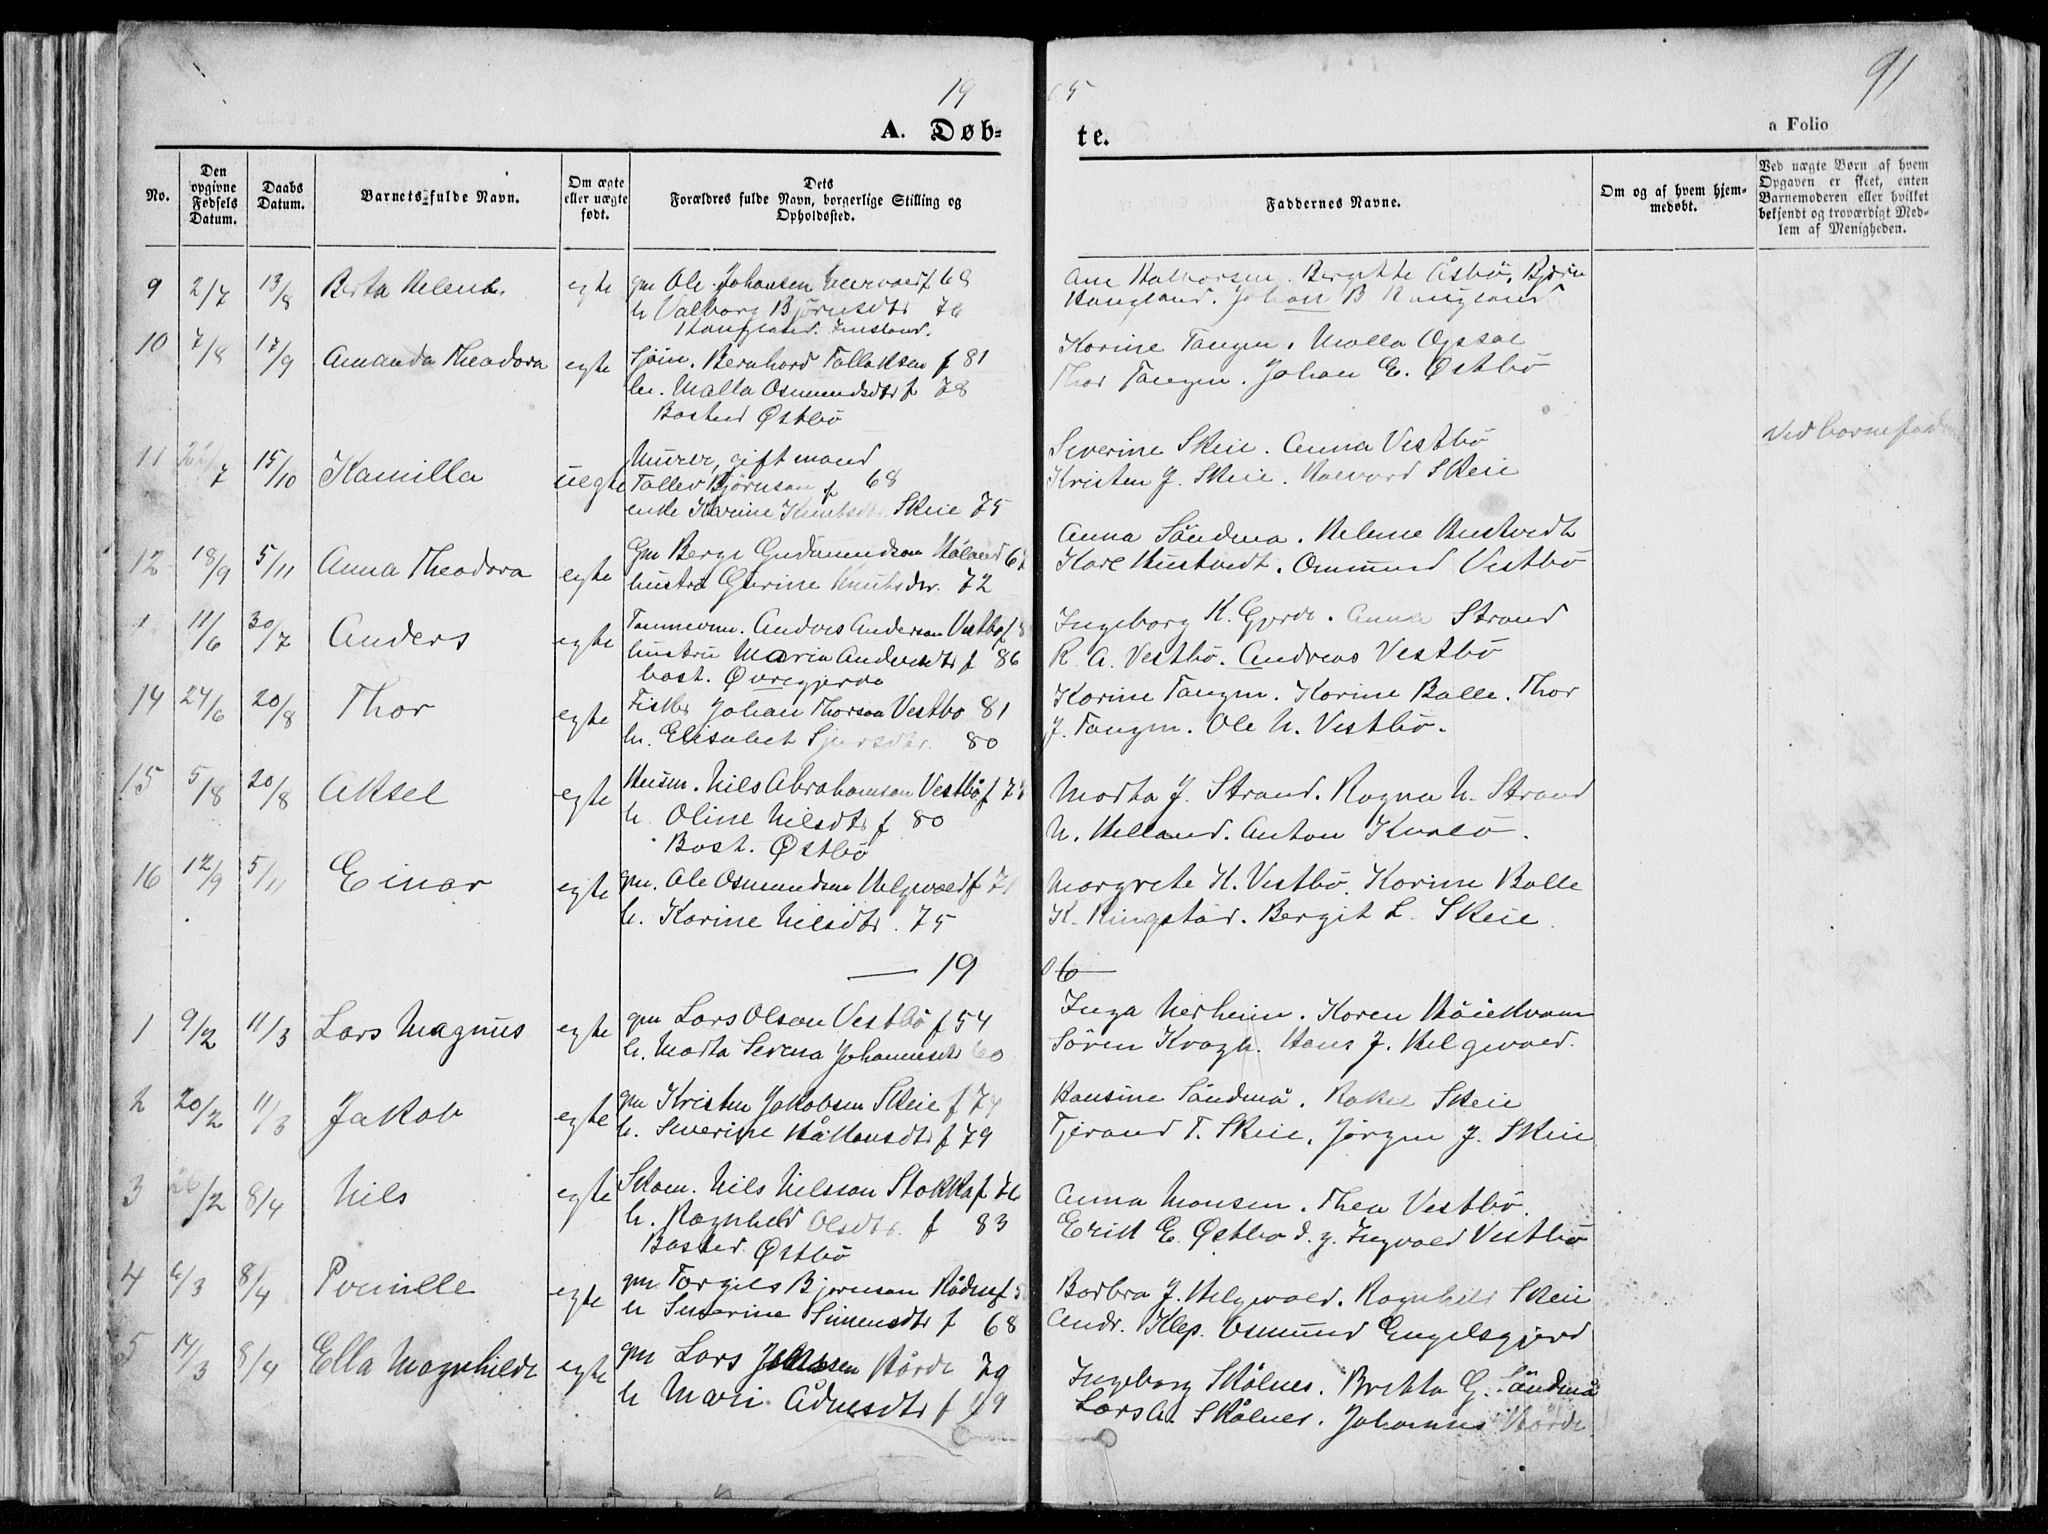 19 05
91
A. Døbte.
a Folio
No.
Den opgivne Fødsels Datum.
Daabs Datum.
Barnets fulde Navn.
Om ægte eller uægte født.
Dets Forældres fulde Navn, borgerlige Stilling og Opholdssted.
Faddernes Navne.
Om og af hvem hjemmedøbt.
Ved uægte Børn af hvem Opgaven er skeet, enten Barnemoderen eller hvilket bekjendt og troværdigt Medlem af Menigheden.
9 2/7 13/8 Berta Helene egte gm Ole Johansen f 68
h Valborg Björnsdtr 76
Haugland. Imsland.
Ane Halvorsen. Bergitte Åsbö, Björn
Haugland. Johan B Haugland
10 7/8 17/9 Amanda Theodora egte Sjöm. Bernhard Tollaksen f 81
h. Malla Osmundsdtr f 78
Bosted Østbö
Karine Tangen. Malla Opsal
Thor Tangen. Johan E. Østbö
11 /7 15/10 Kamilla uegte Murer, gift mand
Tollev Björnson f 68
enke Karine Knutsdtr Skeie 75
Severine Skeie. Anna Vestbö
Kristen J. Skeie. Halvard Skeie
Ved barnefaderen
12 18/9 5/11 Anna Theodora egte Gm Berge Gudmundson
hustru Gurine Knutsdtr. 72
Anna Söndenå. Helene Hustvedt
Karl Hustvedt. Ommund Vestbö
1 11/6 30/7 Anders egte Tømmerm. Andres Anderson Vestbö f 8
hustru Maria Andersdtr f 86
bost. Øvregjerde
Ingeborg K. Gjerde. Anna Strand
R. A. Vestbö. Andreas Vestbö
14 24/6 20/8 Thor egte Fisker Johan Thorson Vestbö 81
h. Elisabet Sjursdtr. 80
Karine Tangen. Karine Balle. Thor
J. Tangen. Ole N. Vestbö.
15 5/8 20/8 Aksel egte Husm. Nils Abrahamson Vestbö f
h. Oline Nilsdtr f 80
Bost. Østbö
Marta J. Strand. Ragna N. Strand
N. Helland. Anton Kvalö.
16 12/9 5/11 Einar egte gm. Ole Osmundsen Helgevold f 71
h. Karine Nilsdtr. 75
Margrete K. Vestbö. Karine Balle
K. Ringstad. Bergit L. Skeie.
— 19 06 —
1 9/2 11/3 Lars Magnus egte gm Lars Olson Vestbö f 54
h. Marta Serena Johannesdtr 60
Inga Nerheim. Karen
Sören Kragh. Hans J. Helgevold.
2 20/2 11/3 Jakob egte gm Kristen Jakobsen Skeie f 74
h. Severine Håkonsdtr f 79
Hansine Söndenå. Rakel Skeie
Tjerand T. Skeie, Jörgen J. Skeie
3 26/2 8/4 Nils egte Skom. Nils Nilsson Stakka f 76
h. Ragnhild Olsdtr. f 83
Bosted Østbö
Anna Monsen. Thea Vestbö.
Erik E. Østbö d. y. Ingvald Vestbö
4 6/3 8/4 Pernille egte gm Torgils Björnson f
h Severine Simensdtr f 68
Barbra J. Helgevold. Ragnhild Skeie
Andr. Klep. Osmund Engelsgjerd
5 14/3 8/4 Ella Magnhilde egte gm Lars Hårde 79
h Mari Ådnesdtr f 79
Ingeborg Skålnes. Britta G. Söndenå
Lars A. Skålnes. Johannes Hårde